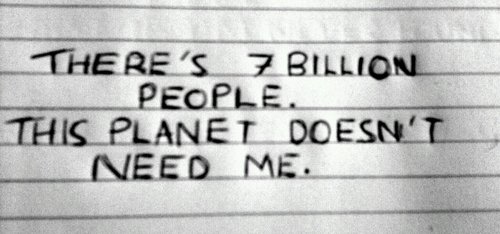 THERE'S 7 BILLION
PEOPLE.
THIS PLANET DOESN'T
NEED ME.